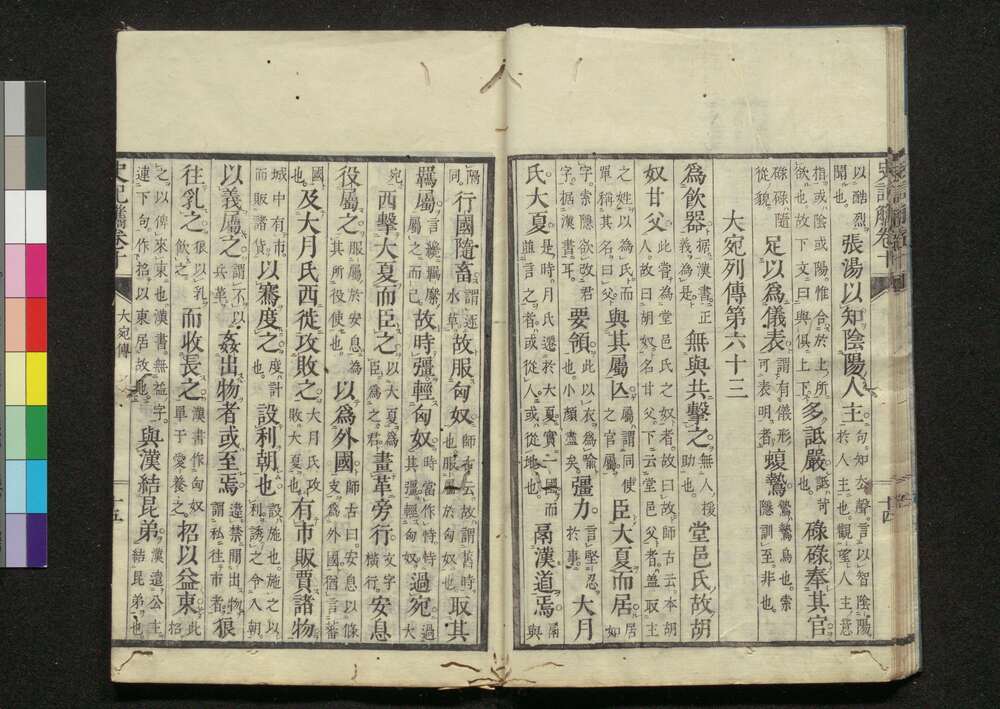 史記觿卷十
十四
以酷烈聞也 張湯以知陰陽人主 句知去聲言以智陰陽於人主也觀望人主意
指或陰或陽惟合於上所欲也故下文曰與俱上下 多詆嚴 詆訶也 碌碌奉其官
碌碌隨從貌 足以爲儀表 謂有儀形可表明者 蝮鷙 鷙鷙鳥也索隱訓至非也
大宛列傳第六十三
爲飲器 据漢書正義爲是 無與共擊之 無人援助也 堂邑氏故胡
奴甘父 此嘗爲堂邑氏之奴者故曰故師古云本胡人故曰胡奴名甘父下云堂邑父者蓋取主
之姓以爲氏而單稱其名曰父 與其屬亾 屬謂同使之官屬 臣大夏而居 居如
字索隱欲改君字據漢書耳 要領 此以衣爲喻也小顏盡矣 彊力 言堅忍於事 大月
氏大夏 是時月氏遷於大夏實一國而並言之者或從人或從地也 鬲漢道焉 鬲與
隔同 行國隨畜 謂逐水草 故服匈奴 師古云故謂舊時也服屬於匈奴也 取其
羈屬 言纔羈縻屬之而已 故時彊輕匈奴 時當作恃恃其彊輕匈奴 過宛 過大
宛 西擊大夏而臣之 以大夏爲臣爲之君 畫革旁行 文字橫行 安息
役屬之 服屬於安息爲其所役使也 以爲外國 師古曰安息以條支爲外國猶言蕃
國也 及大月氏西徙攻敗之 大月氏攻敗大夏也 有市販賈諸物
城中有市而販諸貨 以騫度之 度計也 設利朝也 設施也施之以利誘之令入朝
以義屬之 謂不以兵革 姦出物者或至焉 違禁闌出物謂私往市者 狼
往乳之 狼以乳飲之 而收長之 漢書作匈奴單于愛養之 招以益東 此招
之以俾來東也漢書無益字連下句作招以東居故也 與漢結昆弟 漢遣公主結昆弟也
史記觿卷十 大宛傳 十五